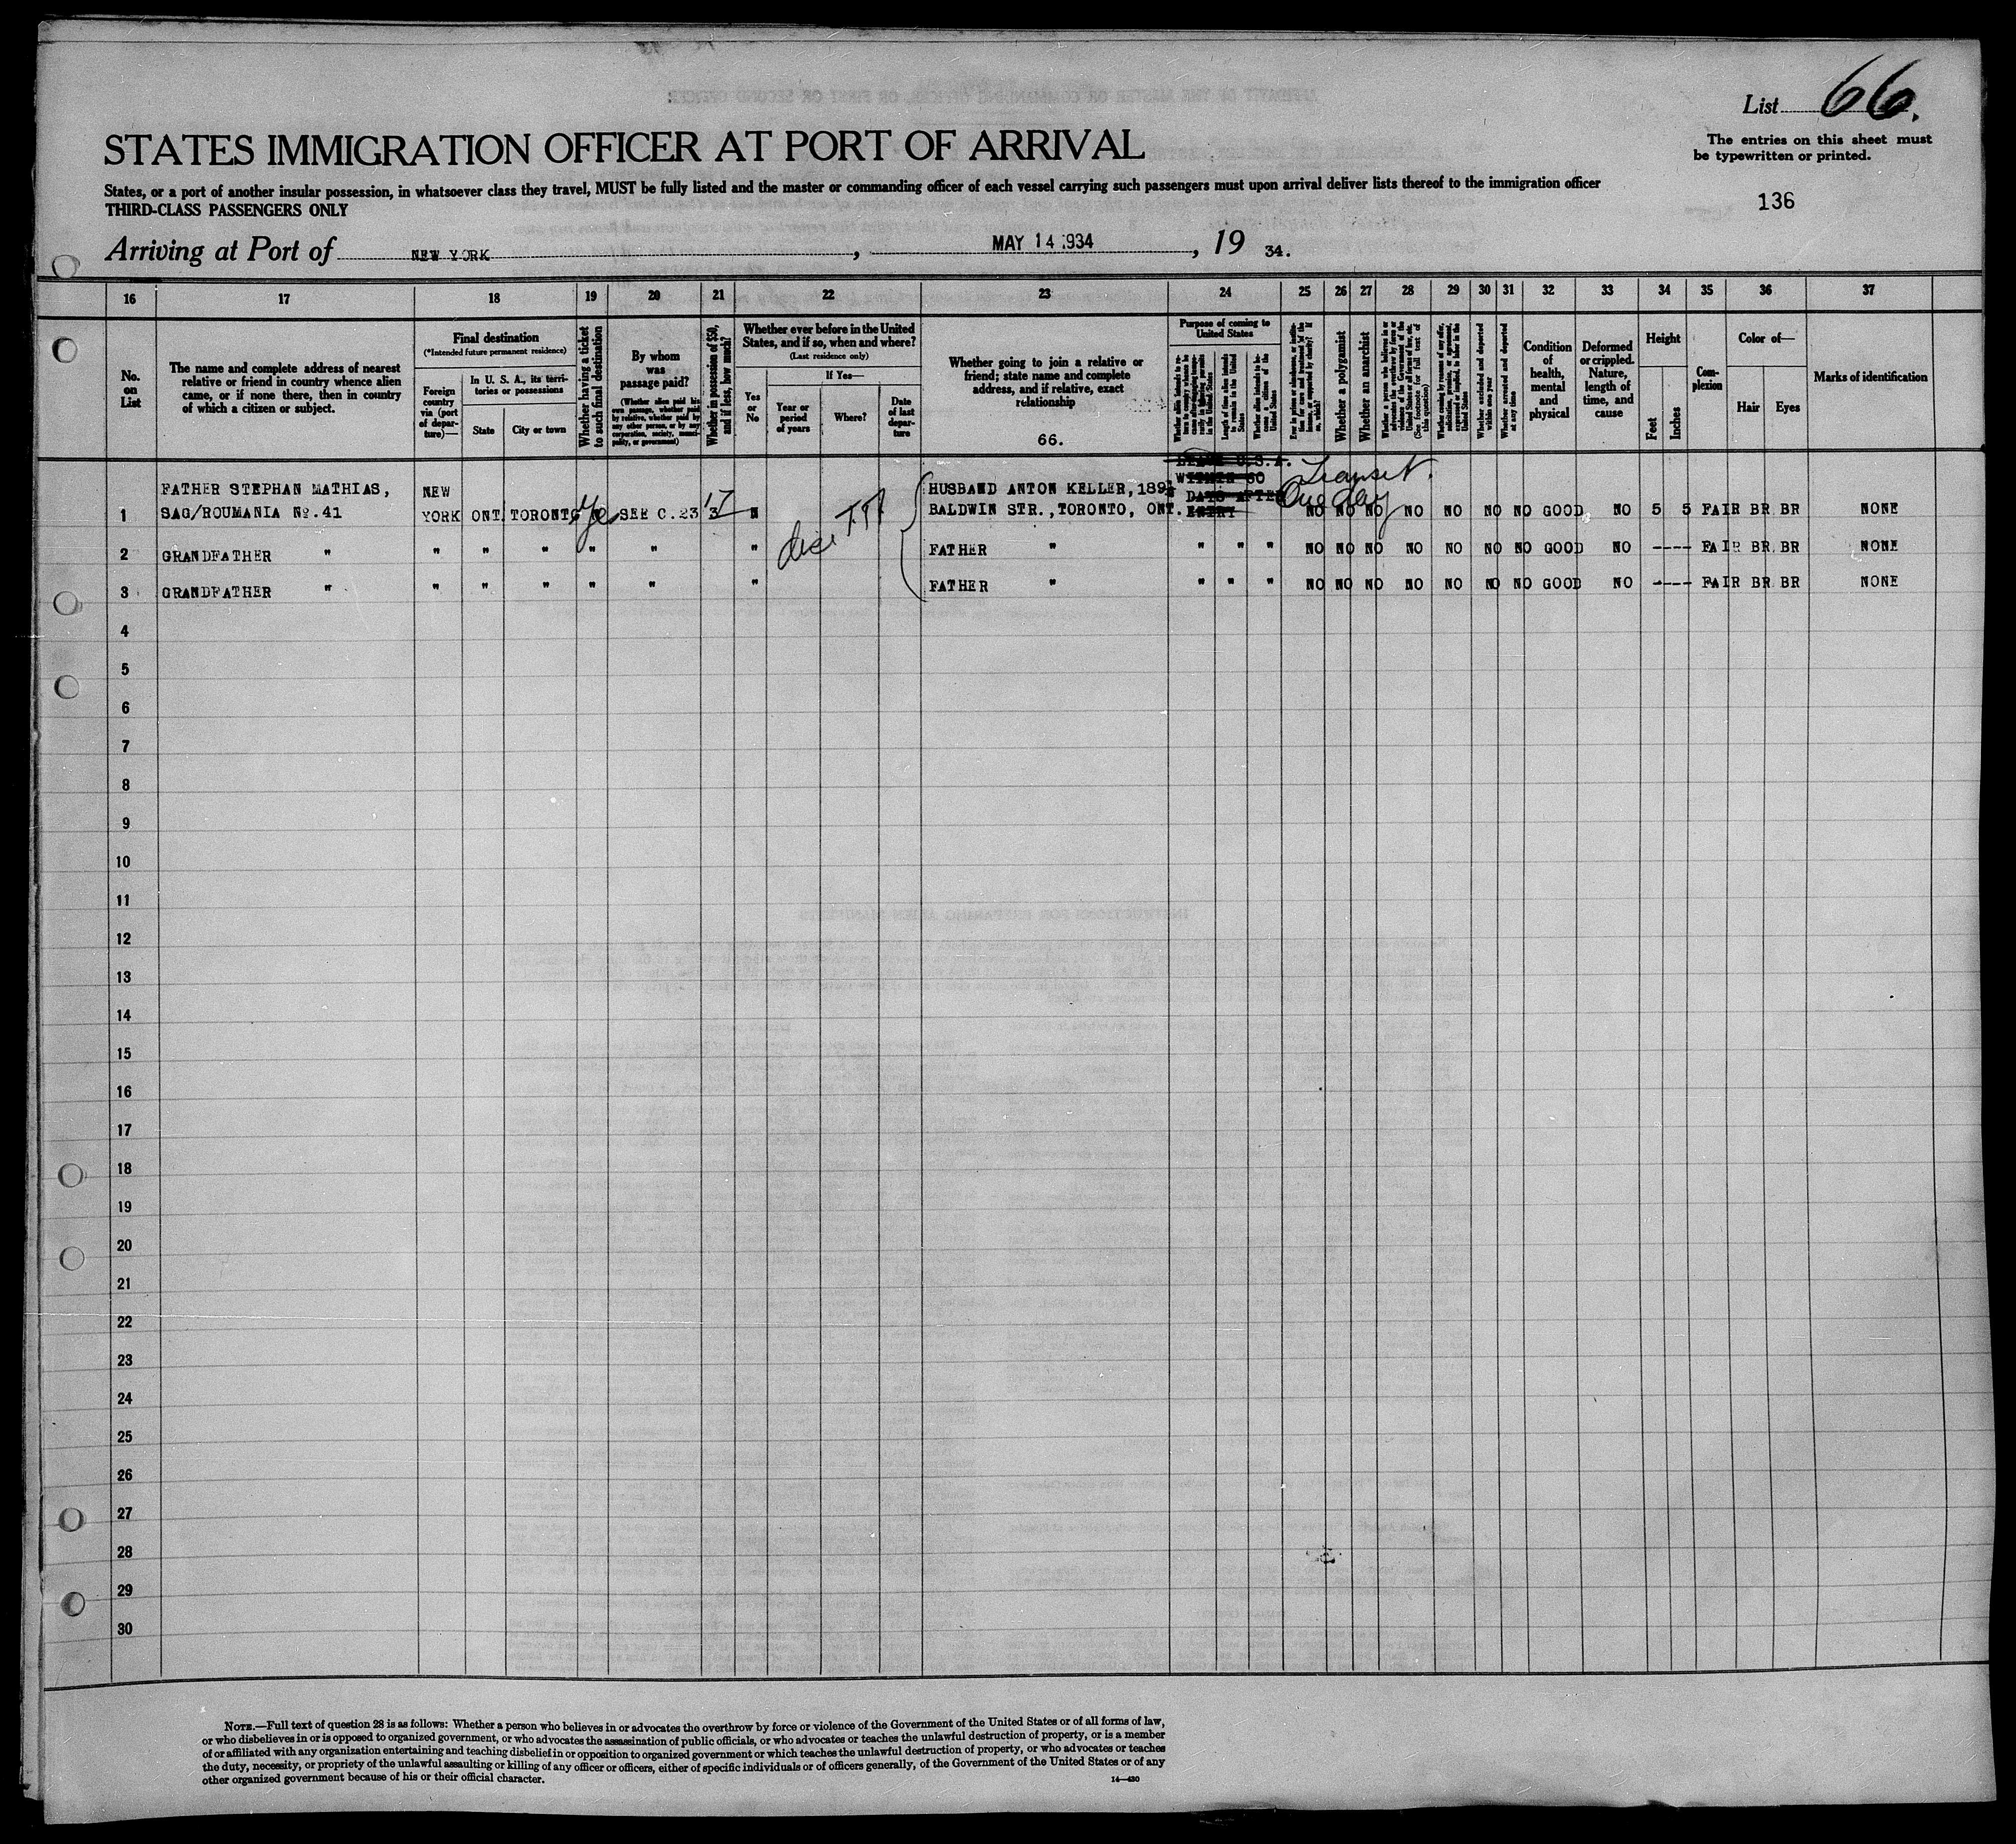 List 66.
STATES IMMIGRATION OFFICER AT PORT OF ARRIVAL
The entries on this sheet must
be typewritten or printed.
States, or a port of another insular possession, in whatsoever class they travel, MUST be fully listed and the master or commanding officer of each vessel carrying such passengers must upon arrival deliver lists thereof to the immigration officer
THIRD-CLASS PASSENGERS ONLY
136
Arriving at Port of NEW YORK, MAY 14 1934, 19 34.
16 17 18 19 20 21 22 23 24 25 26 27 28 29 30 31 32 33 34 35 36 37
No.
on
List
The name and complete address of nearest
relative or friend in country whence alien
came, or if none there, then in country
of which a citizen or subject.
Final destination
(*Intended future permanent residence)
Foreign
country
via (port
of depar-
ture)—
In U. S. A., its terri-
tories or possessions
State
City or town
Whether having a ticket
to such final destination
By whom
was
passage paid?
(Whether alien paid his
own passage, whether paid
by relative, whether paid by
any other person, or by any
corporation, society, munici-
pality, or government)
Whether in possession of $50,
and if less, how much?
Whether ever before in the United
States, and if so, when and where?
(Last residence only)
Yes
or
No
If Yes—
Year or
period
of years
Where?
Date
of last
depar-
ture
Whether going to join a relative or
friend; state name and complete
address, and if relative, exact
relationship
66.
Purpose of coming to
United States
Length of time alien intends
to remain in the United
States
Whether alien intends to be-
come a citizen of the
United States
Whether a polygamist
Whether an anarchist
Whether excluded and deported
within one year
Whether arrested and deported
at any time
Condition
of
health,
mental
and
physical
Deformed
or crippled.
Nature,
length of
time, and
cause
Height
Feet
Inches
Com-
plexion
Color of—
Hair
Eyes
Marks of identification
LEAVE U.S.A.
WITHIN 60
DAYS AFTER
ENTRY
Transit.
One day
FATHER STEPHAN MATHIAS, NEW HUSBAND ANTON KELLER, 189½
1 SAG/ROUMANIA No.41 YORK ONT. TORONTO Yes SEE C.23 N BALDWIN STR., TORONTO, ONT. NO NO NO NO NO NO NO GOOD NO 5 5 FAIR BR BR NONE
2 GRANDFATHER " " " " " " " FATHER " " " " NO NO NO NO NO NO NO GOOD NO ---- FAIR BR BR NONE
3 GRANDFATHER " " " " " " " FATHER " " " " NO NO NO NO NO NO NO GOOD NO ---- FAIR BR BR NONE
4
5
6
7
8
9
10
11
12
13
14
15
16
17
18
19
20
21
22
23
24
25
26
27
28
29
30
NOTE.—Full text of question 28 is as follows: Whether a person who believes in or advocates the overthrow by force or violence of the Government of the United States or of all forms of law,
or who disbelieves in or is opposed to organized government, or who advocates the assassination of public officials, or who advocates or teaches the unlawful destruction of property, or is a member
of or affiliated with any organization entertaining and teaching disbelief in or opposition to organized government or which teaches the unlawful destruction of property, or who advocates or teaches
the duty, necessity, or propriety of the unlawful assaulting or killing of any officer or officers, either of specific individuals or of officers generally, of the Government of the United States or of any
other organized government because of his or their official character.
14—430